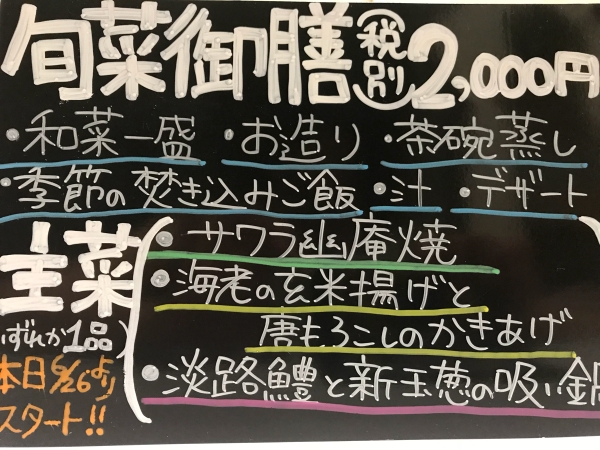 旬菜御膳(税別)2,000円
・和菜一盛 ・お造り ・茶碗蒸し
・季節の焚き込みご飯 ・汁 ・デザート
主菜
ずれか1品)
本日5/26より
スタート!!
・サワラ幽庵焼
・海老の玄米揚げと
唐もろこしのかきあげ
・淡路鱧と新玉葱の吸い鍋